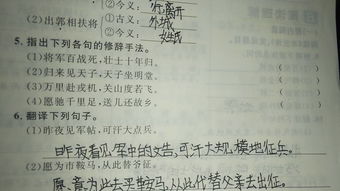 ②今义: 离开
(2)出郭相扶将 ①古义: 外城
②今义: 姓氏
5. 指出下列各句的修辞手法。
(1)将军百战死，壮士十年归。 ( )
(2)归来见天子，天子坐明堂。 ( )
(3)万里赴戎机，关山度若飞。 ( )
(4)愿驰千里足，送儿还故乡。 ( )
6. 翻译下列句子。
(1)昨夜见军帖，可汗大点兵。
昨夜看见军中的文告，可汗大规模地征兵。
(2)愿为市鞍马，从此替爷征。
愿意为此去买鞍马，从此代替父亲去出征。